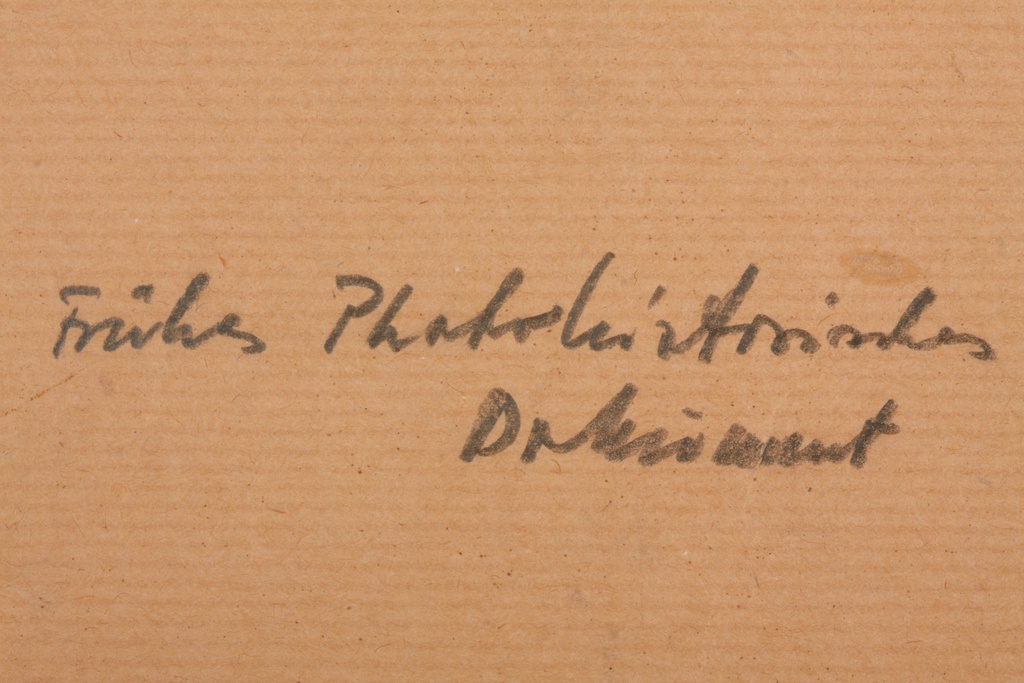 Frühes Photohistorisches
Dokument